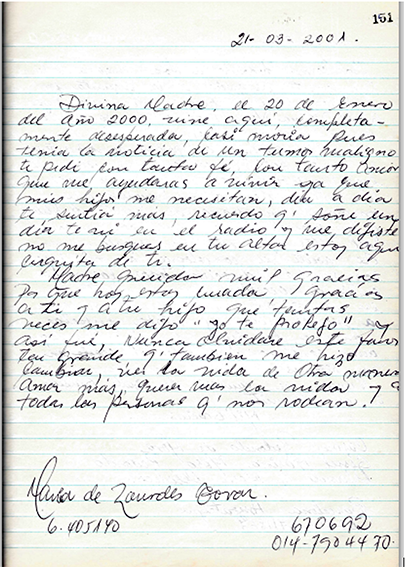 151
21-03-2001.
Divina Madre, el 20 de Enero
del año 2000, vine aquí, completa-
mente desesperada, casi moria pues
tenia la noticia de un tumor maligno
te pidi con tanta fé, con tanto amor
que me ayudaras a vivir ya que
mis hijos me necesitan, dia a dia
te sentia mas, recuerdo q' soñe un
dia te vi en el radio y me dijiste
no me busques en tu altar estoy aqui
cerquita de ti.
Madre querida mil gracias
por que hoy estoy curada, gracias
a ti y a tu hijo que tantas
veces me dijo "yo te protejo" y
así fué, Nunca olvidare este favor
tan grande q' tambien me hizo
cambiar, ver la vida de otra manera
Amar más, querer mas la vida y a
todas las personas q' nos rodean.
Maria de Lourdes Tovar.
6.405140
670692
014-7904470.